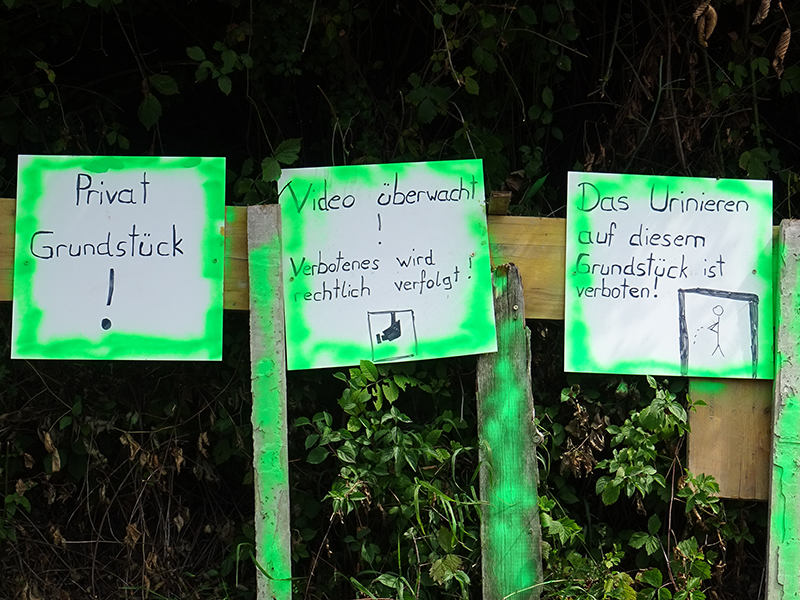 Privat
Grundstück
!
Video überwacht
!
Verbotenes wird
rechtlich verfolgt!
Das Urinieren
auf diesem
Grundstück ist
verboten!